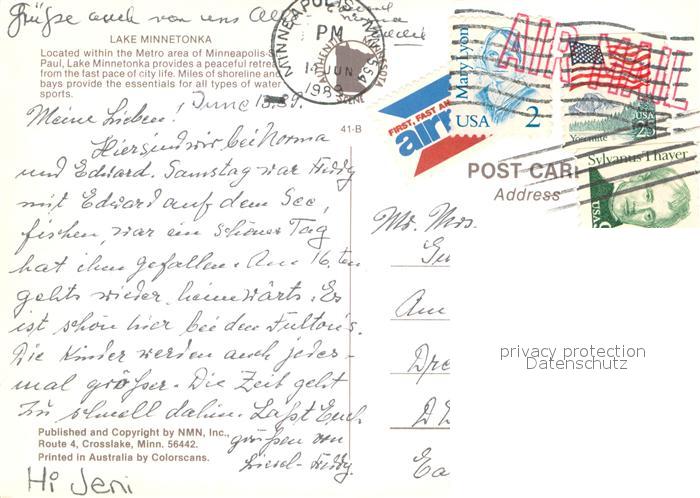 Grüße auch von uns
LAKE MINNETONKA
Located within the Metro area of Minneapolis-S
Paul, Lake Minnetonka provides a peaceful retrea
from the fast pace of city life. Miles of shoreline and
bays provide the essentials for all types of water
sports.
MINNEAPOLIS, MN 554
PM
14 JUN
1989
June 13.89.
Meine Lieben!
Hier sind wir bei Norma
und Edward. Samstag war Freddy
mit Edward auf dem See,
fischen, war ein schöner Tag
hat ihm gefallen. Am 16. ten
gehts wieder heimwärts. Es
ist schön hier bei den Fulton's.
Die Kinder werden auch jedes-
mal größer. Die Zeit geht
zu schnell dahin. Laßt Euch
grüßen von
Liesel-Freddy.
Published and Copyright by NMN, Inc.,
Route 4, Crosslake, Minn. 56442.
Printed in Australia by Colorscans.
Hi Jeni
41-B
FIRST, FAST AN
airm
Mary Lyon
USA 2
AIR MAIL
USA
25
Yosemite
Sylvanus Thaver
USA 9
POST CARD
Address
Mr. Mrs.
Gu
Am
Dre
D
Ea
privacy protection
Datenschutz